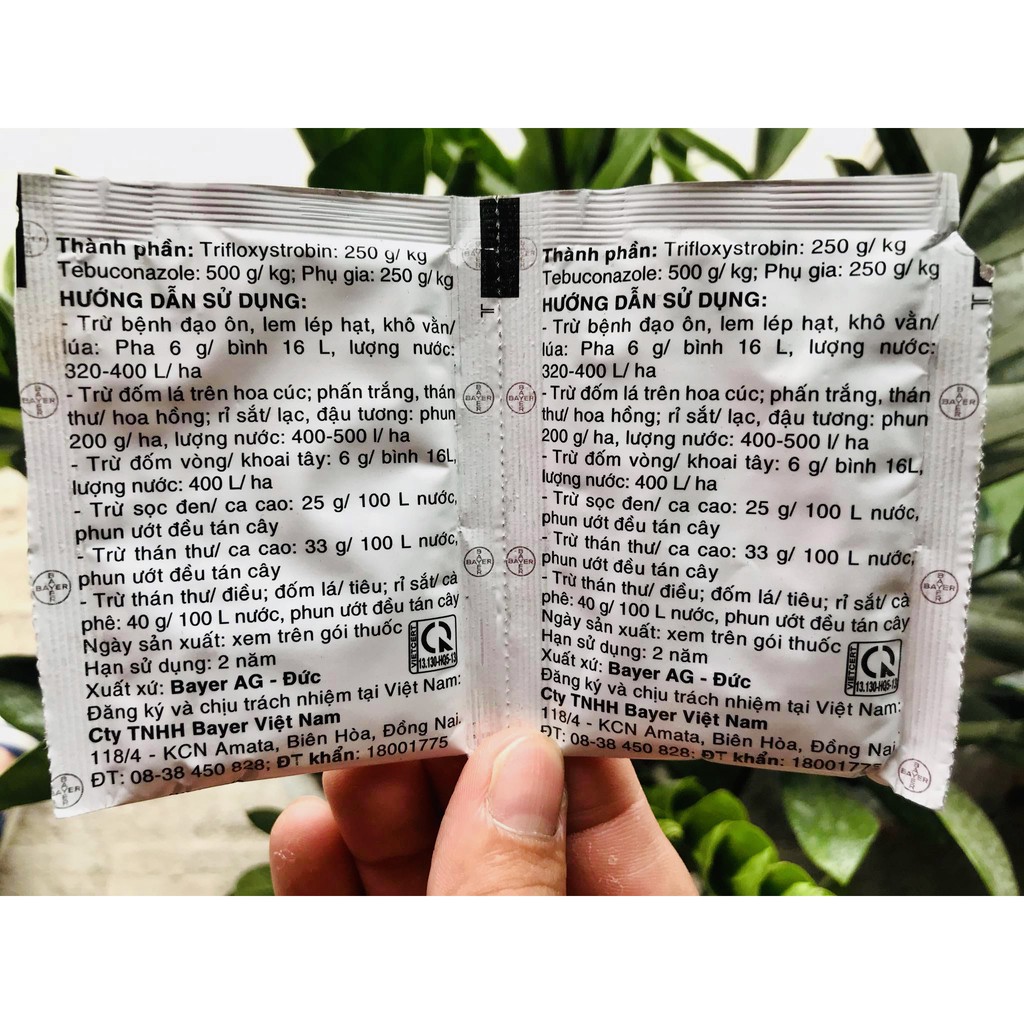 Thành phần: Trifloxystrobin: 250 g/ kg
Tebuconazole: 500 g/ kg; Phụ gia: 250 g/ kg
HƯỚNG DẪN SỬ DỤNG:
- Trừ bệnh đạo ôn, lem lép hạt, khô vằn/
lúa: Pha 6 g/ bình 16 L, lượng nước:
320-400 L/ ha
- Trừ đốm lá trên hoa cúc; phấn trắng, thán
thư/ hoa hồng; rỉ sắt/ lạc, đậu tương: phun
200 g/ ha, lượng nước: 400-500 l/ ha
- Trừ đốm vòng/ khoai tây: 6 g/ bình 16L,
lượng nước: 400 L/ ha
- Trừ sọc đen/ ca cao: 25 g/ 100 L nước,
phun ướt đều tán cây
- Trừ thán thư/ ca cao: 33 g/ 100 L nước,
phun ướt đều tán cây
- Trừ thán thư/ điều; đốm lá/ tiêu; rỉ sắt/ cà
phê: 40 g/ 100 L nước, phun ướt đều tán cây
Ngày sản xuất: xem trên gói thuốc
Hạn sử dụng: 2 năm
Xuất xứ: Bayer AG - Đức
Đăng ký và chịu trách nhiệm tại Việt Nam:
Cty TNHH Bayer Việt Nam
118/4 - KCN Amata, Biên Hòa, Đồng Nai.
ĐT: 08-38 450 828; ĐT khẩn: 18001775
VIETCERT
13.130-HQ5-13
BAYER
BAYER
BAYER
BAYER
BAYER
Thành phần: Trifloxystrobin: 250 g/ kg
Tebuconazole: 500 g/ kg; Phụ gia: 250 g/ kg
HƯỚNG DẪN SỬ DỤNG:
- Trừ bệnh đạo ôn, lem lép hạt, khô vằn/
lúa: Pha 6 g/ bình 16 L, lượng nước:
320-400 L/ ha
- Trừ đốm lá trên hoa cúc; phấn trắng, thán
thư/ hoa hồng; rỉ sắt/ lạc, đậu tương: phun
200 g/ ha, lượng nước: 400-500 l/ ha
- Trừ đốm vòng/ khoai tây: 6 g/ bình 16L,
lượng nước: 400 L/ ha
- Trừ sọc đen/ ca cao: 25 g/ 100 L nước,
phun ướt đều tán cây
- Trừ thán thư/ ca cao: 33 g/ 100 L nước,
phun ướt đều tán cây
- Trừ thán thư/ điều; đốm lá/ tiêu; rỉ sắt/ cà
phê: 40 g/ 100 L nước, phun ướt đều tán cây
Ngày sản xuất: xem trên gói thuốc
Hạn sử dụng: 2 năm
Xuất xứ: Bayer AG - Đức
Đăng ký và chịu trách nhiệm tại Việt Nam:
Cty TNHH Bayer Việt Nam
118/4 - KCN Amata, Biên Hòa, Đồng Nai
ĐT: 08-38 450 828; ĐT khẩn: 18001775
VIETCERT
13.130-HQ5-13
BAYER
BAYER
BAYER
BAYER
BAYER